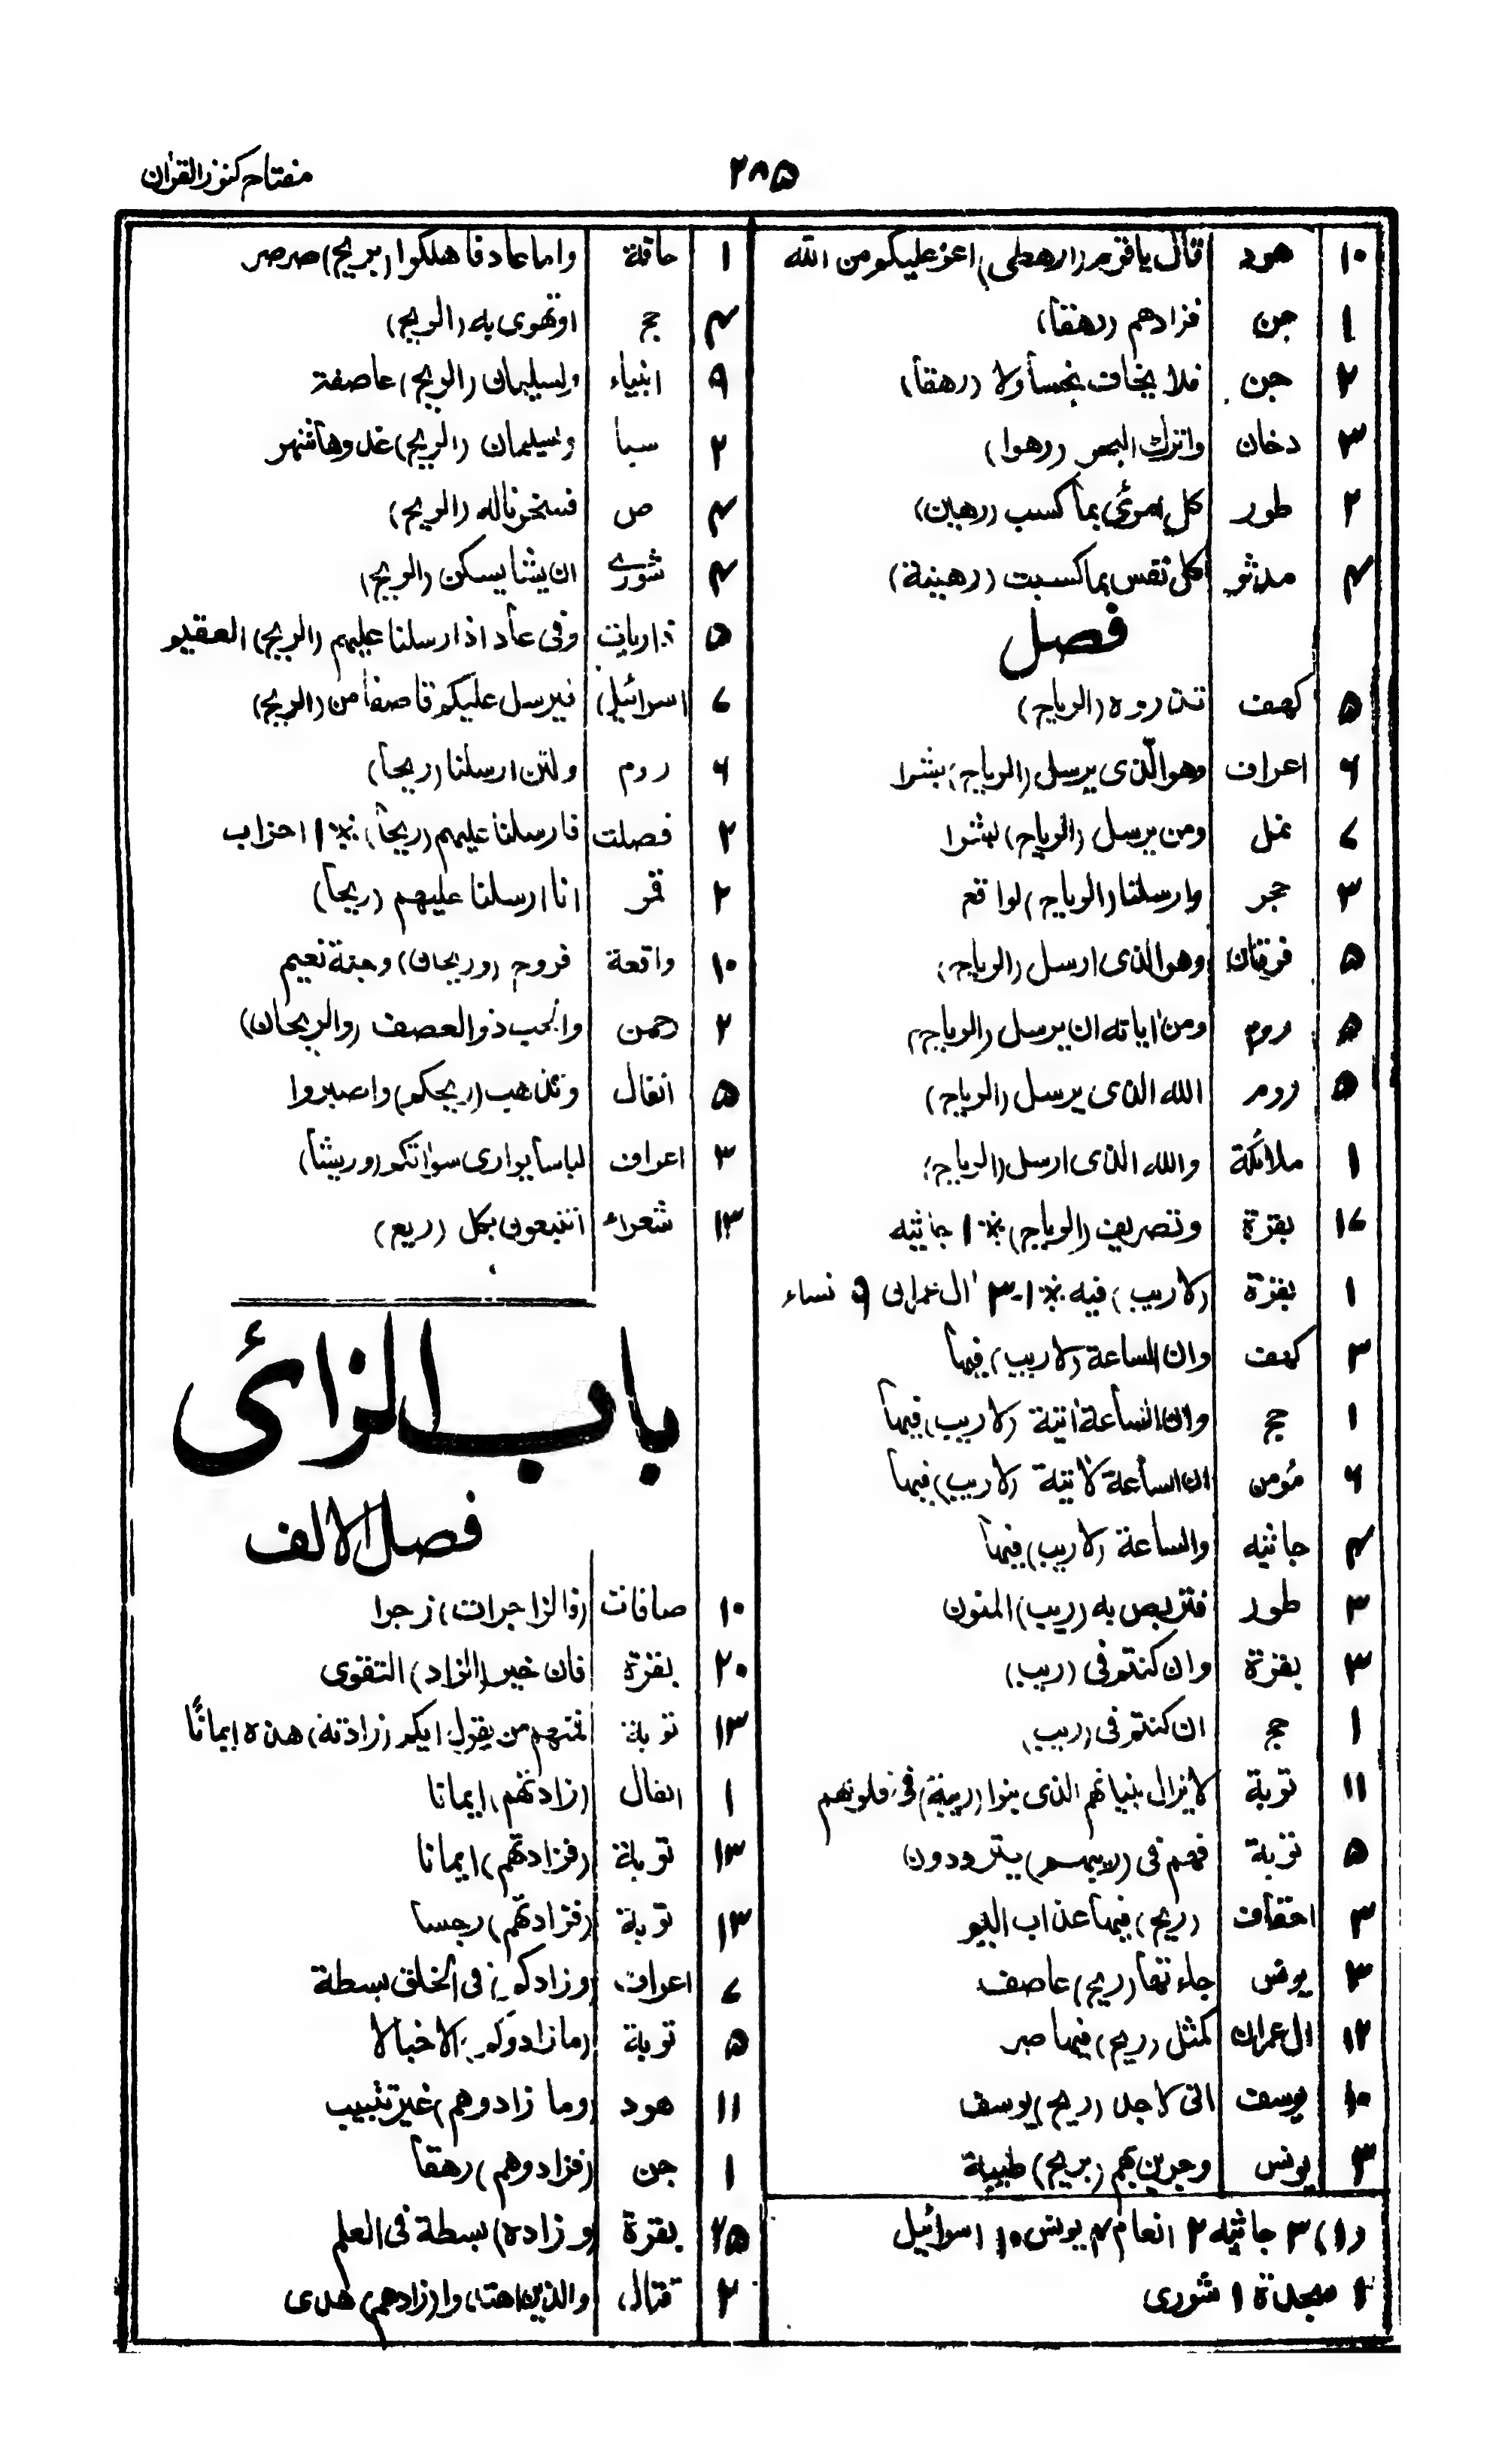 مفتاح کنوز القرأن
۲۸۵
۱۰ هود قال یا قوم (ارهطی) اعز علیکم من الله
۱ جن فزادهم (رهقاً)
۲ جن فلا یخاف بخساً ولا (رهقاً)
۳ دخان واترك البحر (رهوا)
۲ طور کل امرئ بما کسب (رهین)
۴ مدثر کل نفس بما کسبت (رهینة)
فصل
۵ کهف تذروه (الریاح)
۶ اعراف وهو الّذی یرسل (الریاح) بشرا
۷ نمل ومن یرسل (الریاح) بشرا
۳ حجر وارسلنا (الریاح) لواقع
۵ فرقان وهو الذی ارسل (الریاح)
۵ روم ومن ایاته ان یرسل (الریاح)
۵ روم الله الذی یرسل (الریاح)
۱ ملائکة والله الذی ارسل (الریاح)
۱۷ بقرة وتصریف (الریاح) ※ ۱ جاثیه
۱ بقرة (لاریب) فیه ※ ۱-۳ ال عمران ۹ نساء
۳ کهف وان الساعة (لاریب) فیها
۱ حج وان الساعة اتیة (لاریب) فیها
۶ مؤمن ان الساعة لاتیة (لاریب) فیها
۴ جاثیه والساعة (لاریب) فیها
۳ طور فتربص به (ریب) المنون
۳ بقرة وان کنتم فی (ریب)
۱ حج ان کنتم فی (ریب)
۱۱ توبة لا یزال بنیانهم الذی بنوا (ریبة) فی قلوبهم
۵ توبة فهم فی (ریبهم) یترددون
۳ احقاف (ریح) فیها عذاب الیم
۳ یونس جاءتها (ریح) عاصف
۱۲ ال عمران کمثل (ریح) فیها صر
۱۰ یوسف انی لاجد (ریح) یوسف
۳ یونس وجرین بهم (بریح) طیبة
(۱) ۳ جاثیه ۲ انعام ۴ یونس ۱۰ اسرائیل
۲ سجدة ۱ شوری
۱ حاقة واما عاد فاهلکوا (بریح) صرصر
۴ حج اوتهوی به (الریح)
۹ انبیاء ولسلیمان (الریح) عاصفة
۲ سبا ولسلیمان (الریح) غدوها شهر
۴ ص فسخرنا له (الریح)
۴ شوری ان یشا یسکن (الریح)
۵ ذاریات وفی عاد اذ ارسلنا علیهم (الریح) العقیم
۷ اسرائیل فیرسل علیکم قاصفاً من (الریح)
۶ روم ولئن ارسلنا (ریحاً)
۲ فصلت فارسلنا علیهم (ریحاً) ※ ۱ احزاب
۲ قمر انا ارسلنا علیهم (ریحاً)
۱۰ واقعة فروح (وریحان) وجنة نعیم
۲ رحمن والحب ذوالعصف (والریحان)
۵ انفال وتذهب (ریحکم) واصبروا
۳ اعراف لباساً یواری سواتکم (وریشاً)
۱۳ شعراء اتبنون بکل (ریع)
باب الزائ
فصل الالف
۱۰ صافات (فالزاجرات) زجرا
۲۰ بقرة فان خیر (الزاد) التقوی
۱۳ توبة فمنهم من یقول ایکم (زادته) هذه ایمانًا
۱ انفال (زادتهم) ایمانا
۱۳ توبة (فزادتهم) ایمانا
۱۳ توبة (فزادتهم) رجسا
۷ اعراف (وزادکم) فی الخلق بسطة
۵ توبة (ما زادوکم) الا خبالا
۱۱ هود (وما زادوهم) غیر تتبیب
۱ جن (فزادوهم) رهقاً
۲۵ بقرة (وزاده) بسطة فی العلم
۲ قتال والذین اهتدوا (زادهم) هدی